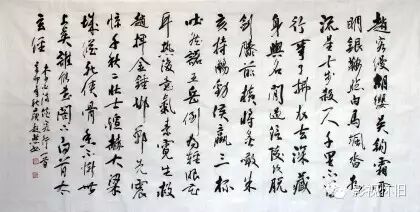 趙客縵胡纓吳鉤霜雪
明銀鞍照白馬颯沓如
流星十步殺一人千里不留
行事了拂衣去深藏
身與名閑過信陵飲脫
劍膝前橫將炙啖朱
亥持觴勸侯嬴三杯
吐然諾五岳倒為輕眼花
耳熱後意氣素霓生救
趙揮金錘邯鄲先震
驚千秋二壯士烜赫大梁
城縱死俠骨香不慚世
上英誰能書閣下白首太
玄經
李白詩俠客行一首
辛卯年秋
影视怀旧